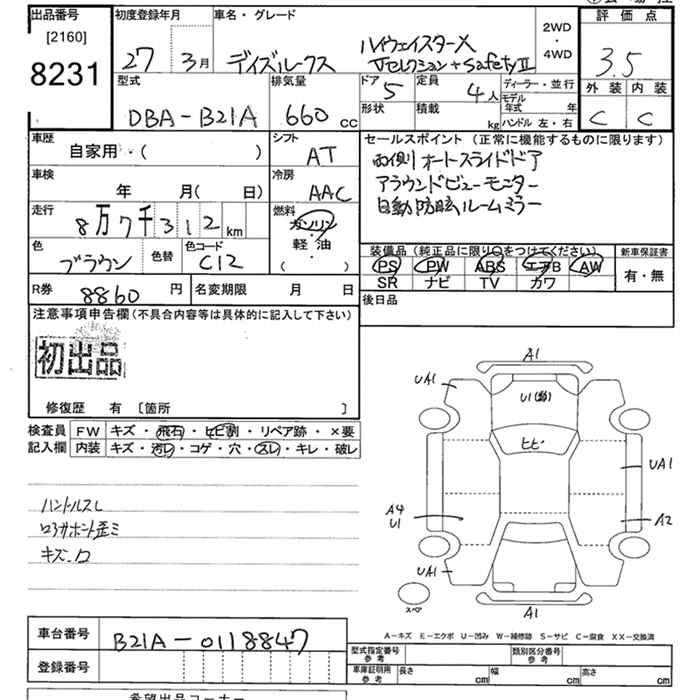 出品番号
[2160]
8231
初度登録年月
27 3月
車名・グレード
ディズルークス
ハイウェイスターX
Vセレクション+SafetyⅡ
2WD
・
4WD
評価点
3.5
外装 内装
C C
型式
DBA-B21A
排気量
660 cc
ドア
5
定員
4人
ディーラー・並行
形状
積載
kg
モデル
年式 年
ハンドル 左・右
車歴
自家用・( )
シフト
AT
セールスポイント (正常に機能するものに限ります)
両側オートスライドドア
アラウンドビューモニター
自動防眩ルームミラー
車検
年 月( 日)
冷房
AAC
走行
8万7千312km
燃料
ガソリン
軽・油
( )
色
ブラウン
色替
色コード
C12
装備品(純正品に限り○をつけてください)
PS PW ABS エアB AW
SR ナビ TV カワ
新車保証書
有・無
R券
8860円
名変期限 月 日
後日品
注意事項申告欄(不具合内容等は具体的に記入して下さい)
初出品
修復歴 有 [箇所 ]
検査員
記入欄
FW キズ・飛石・ヒビ割・リペア跡・×要
内装 キズ・汚レ・コゲ・穴・スレ・キレ・破レ
ハンドルスレ
キズ
A1
UA1
U1
ヒビ
UA1
A4
U1
A2
UA1
スペア
A1
A-キズ E-エクボ U-凹み W-補修跡 S-サビ C-腐食 XX-交換済
車台番号
B21A-0118847
登録番号
型式指定番号
参考
類別区分番号
参考
車庫証明用
参考
長さ cm 幅 cm 高さ cm
希望出品コーナー